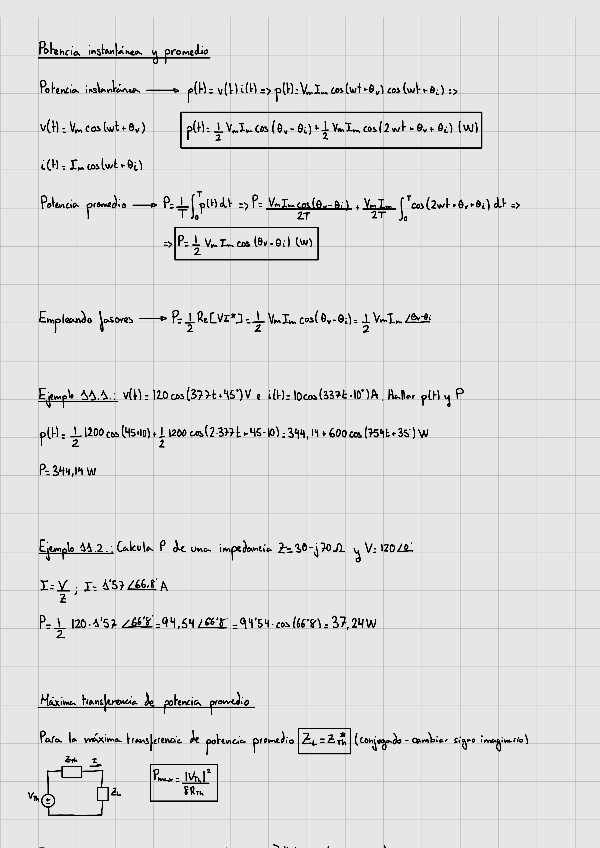 Potencia instantánea y promedio
Potencia instantánea ⟶ p(t) = v(t) i(t) => p(t) = Vm Im cos(wt+θv) cos(wt+θi) =>
v(t) = Vm cos(wt+θv)    p(t) = 1/2 Vm Im cos(θv-θi) + 1/2 Vm Im cos(2wt+θv+θi) (W)
i(t) = Im cos(wt+θi)
Potencia promedio ⟶ P = 1/T ∫₀ᵀ p(t) dt => P = Vm Im cos(θv-θi)/2T + Vm Im/2T ∫₀ᵀ cos(2wt+θv+θi) dt =>
=> P = 1/2 Vm Im cos(θv-θi) (W)
Empleando fasores ⟶ P = 1/2 Re[VI*] = 1/2 Vm Im cos(θv-θi) = 1/2 Vm Im ∠θv-θi
Ejemplo 11.1.: v(t) = 120 cos(377t+45°) V e i(t) = 10 cos(337t-10°) A. Hallar p(t) y P
p(t) = 1/2 1200 cos(45+10) + 1/2 1200 cos(2·377t+45-10) = 344,14 + 600 cos(754t+35°) W
P = 344,14 W
Ejemplo 11.2.: Calcula P de una impedancia Z = 30-j70 Ω y V = 120∠0°
I = V/Z ; I = 1'57 ∠66.8° A
P = 1/2 120·1'57 ∠66'8° = 94,54 ∠66'8° = 94'54·cos(66'8) = 37,24 W
Máxima transferencia de potencia promedio
Para la máxima transferencia de potencia promedio ZL = Z*Th (conjugado - cambiar signo imaginario)
ZTh I
VTh ZL Pmax = |VTh|²/8RTh